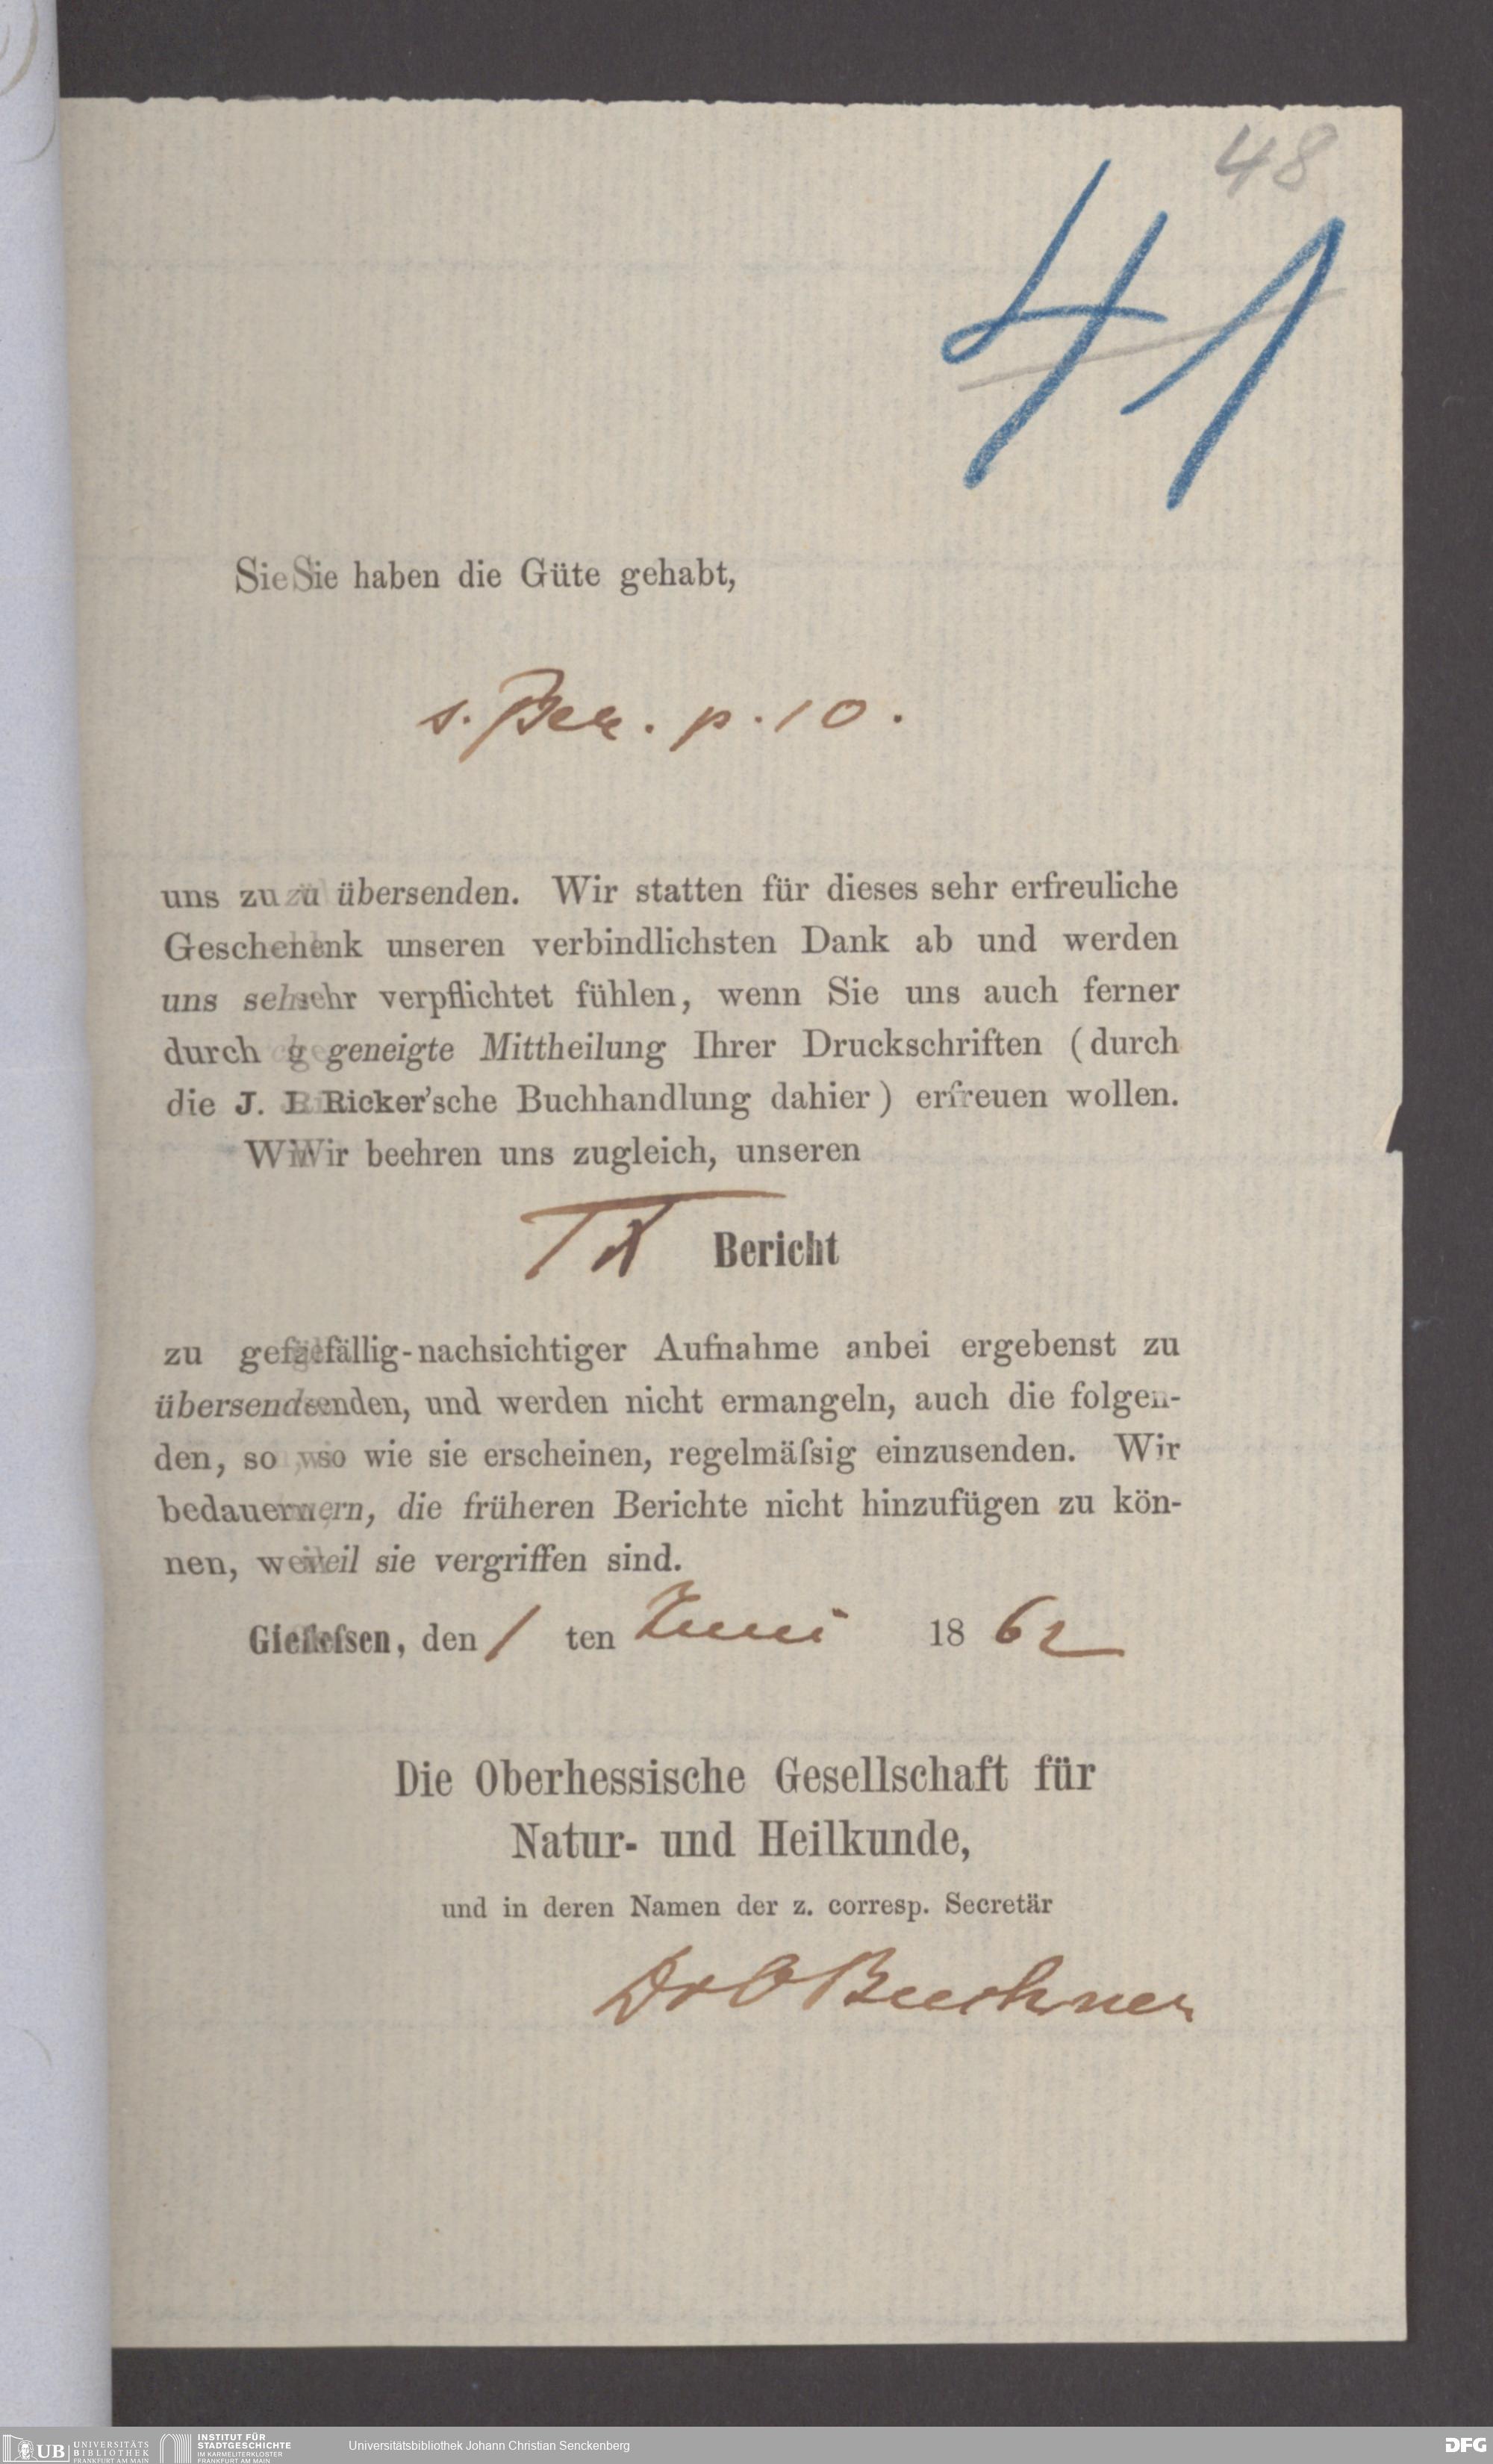 48
41
Sie haben die Güte gehabt,
s. Ber. p. 10.
uns zu übersenden. Wir statten für dieses sehr erfreuliche
Geschenk unseren verbindlichsten Dank ab und werden
uns sehr verpflichtet fühlen, wenn Sie uns auch ferner
durch geneigte Mittheilung Ihrer Druckschriften (durch
die J. Ricker'sche Buchhandlung dahier) erfreuen wollen.
Wir beehren uns zugleich, unseren
IX Bericht
zu gefällig-nachsichtiger Aufnahme anbei ergebenst zu
übersenden, und werden nicht ermangeln, auch die folgen-
den, so wie sie erscheinen, regelmäſsig einzusenden. Wir
bedauern, die früheren Berichte nicht hinzufügen zu kön-
nen, weil sie vergriffen sind.
Gieſsen, den 1 ten Juni 1862
Die Oberhessische Gesellschaft für
Natur- und Heilkunde,
und in deren Namen der z. corresp. Secretär
Dr O Buchner
UB UNIVERSITÄTS
BIBLIOTHEK
FRANKFURT AM MAIN
INSTITUT FÜR
STADTGESCHICHTE
IM KARMELITERKLOSTER
FRANKFURT AM MAIN
Universitätsbibliothek Johann Christian Senckenberg
DFG